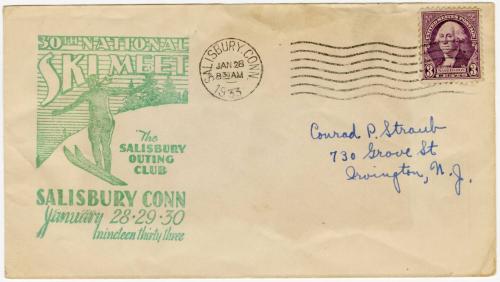 30TH NATIONAL
SKI MEET
The
SALISBURY
OUTING
CLUB
SALISBURY CONN
January 28-29-30
nineteen thirty three
SALISBURY, CONN
JAN 28
8:30AM
1933
3 3
Conrad P. Straub
730 Grove St
Irvington, N.J.